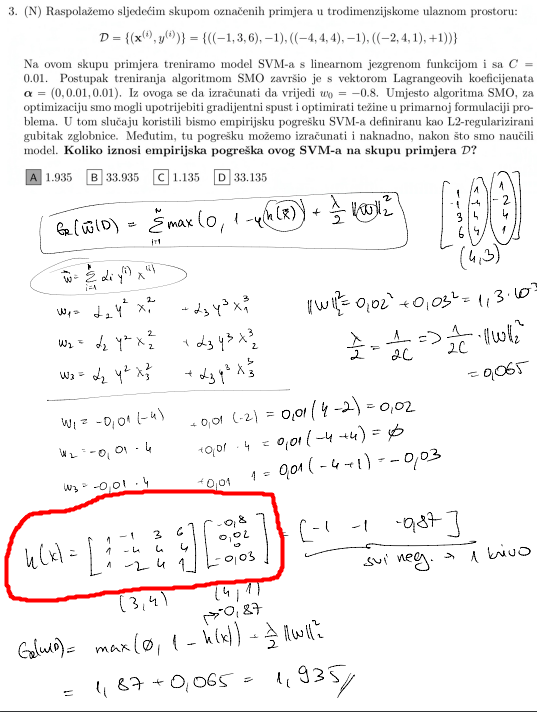 3. (N) Raspolažemo sljedećim skupom označenih primjera u trodimenzijskome ulaznom prostoru:
D = {(x^(i), y^(i))} = {((−1, 3, 6), −1), ((−4, 4, 4), −1), ((−2, 4, 1), +1))}
Na ovom skupu primjera treniramo model SVM-a s linearnom jezgrenom funkcijom i sa C =
0.01. Postupak treniranja algoritmom SMO završio je s vektorom Lagrangeovih koeficijenata
α = (0, 0.01, 0.01). Iz ovoga se da izračunati da vrijedi w₀ = −0.8. Umjesto algoritma SMO, za
optimizaciju smo mogli upotrijebiti gradijentni spust i optimirati težine u primarnoj formulaciji pro-
blema. U tom slučaju koristili bismo empirijsku pogrešku SVM-a definiranu kao L2-regularizirani
gubitak zglobnice. Međutim, tu pogrešku možemo izračunati i naknadno, nakon što smo naučili
model. Koliko iznosi empirijska pogreška ovog SVM-a na skupu primjera D?
A 1.935 B 33.935 C 1.135 D 33.135
E_R(w|D) = Σ_{i=1}^{N} max(0, 1 − y h(x)) + λ/2 ||w||₂²
[1 1 1
-1 -4 -2
3 4 4
6 4 1]
(4,3)
w = Σ_{i=1} αᵢ y^(i) x^(i)
w₁ = α₂ y² x₁² + α₃ y³ x₁³
w₂ = α₂ y² x₂² + α₃ y³ x₂³
w₃ = α₂ y² x₃² + α₃ y³ x₃³
||w||₂² = 0,02² + 0,03² = 1,3 · 10⁻³
λ/2 = 1/2C => 1/2C · ||w||₂²
= 0,065
w₁ = -0,01 (-4) + 0,01 (-2) = 0,01 (4 - 2) = 0,02
w₂ = -0,01 · 4 + 0,01 · 4 = 0,01 (-4 + 4) = ∅
w₃ = -0,01 · 4 + 0,01 1 = 0,01 (-4 + 1) = -0,03
h(x) = [1 -1 3 6
1 -4 4 4
1 -2 4 1] [-0,8
0,02
0
-0,03] = [-1 -1 -0,87]
svi neg. → 1 krivo
(3,4) (4,1)
→ -0,87
E_R(w|D) = max(∅, 1 - h(x)) + λ/2 ||w||₂²
= 1,87 + 0,065 = 1,935